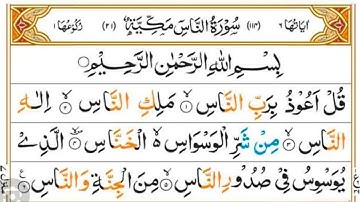 اٰیاتها ٦ (١١٤) سُوْرَةُ النَّاسِ مَكِّيَّةٌ (٢١) رُكُوْعُهَا ١
بِسْمِ اللهِ الرَّحْمٰنِ الرَّحِيْمِ
قُلْ اَعُوْذُ بِرَبِّ النَّاسِ ١ مَلِكِ النَّاسِ ٢ اِلٰهِ
النَّاسِ ٣ مِنْ شَرِّ الْوَسْوَاسِ ٥ الْخَنَّاسِ ٤ الَّذِيْ
يُوَسْوِسُ فِيْ صُدُوْرِ النَّاسِ ٥ مِنَ الْجِنَّةِ وَالنَّاسِ ٦